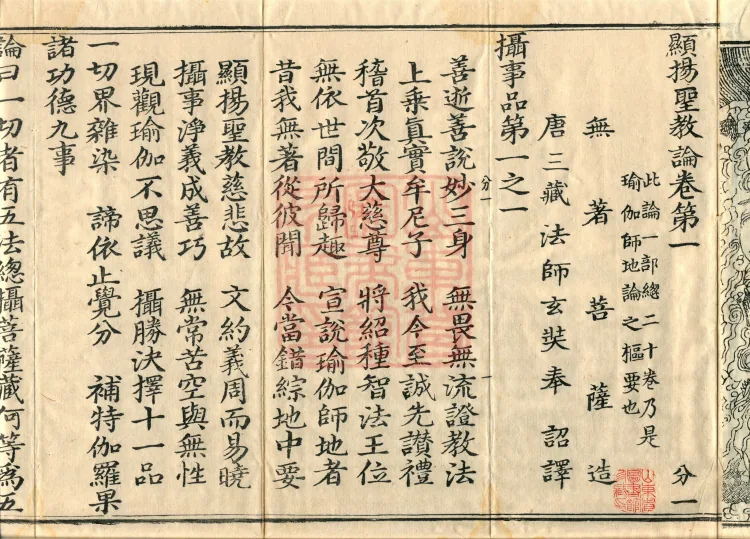 顯揚聖教論卷第一
此論一部總二十卷乃是
瑜伽師地論之樞要也
分一
無著菩薩造
唐三藏法師玄奘奉 詔譯
攝事品第一之一
分一
善逝善說妙三身 無畏無流證教法
上乘真實牟尼子 我今至誠先讃禮
稽首次敬大慈尊 將紹種智法王位
無依世間所歸趣 宣說瑜伽師地者
昔我無著從彼聞 今當錯綜地中要
顯揚聖教慈悲故 文約義周而易曉
攝事淨義成善巧 無常苦空與無性
現觀瑜伽不思議 攝勝決擇十一品
一切界雜染 諦依止覺分 補特伽羅果
諸功德九事
論曰一切者有五法總攝菩薩藏何等為五